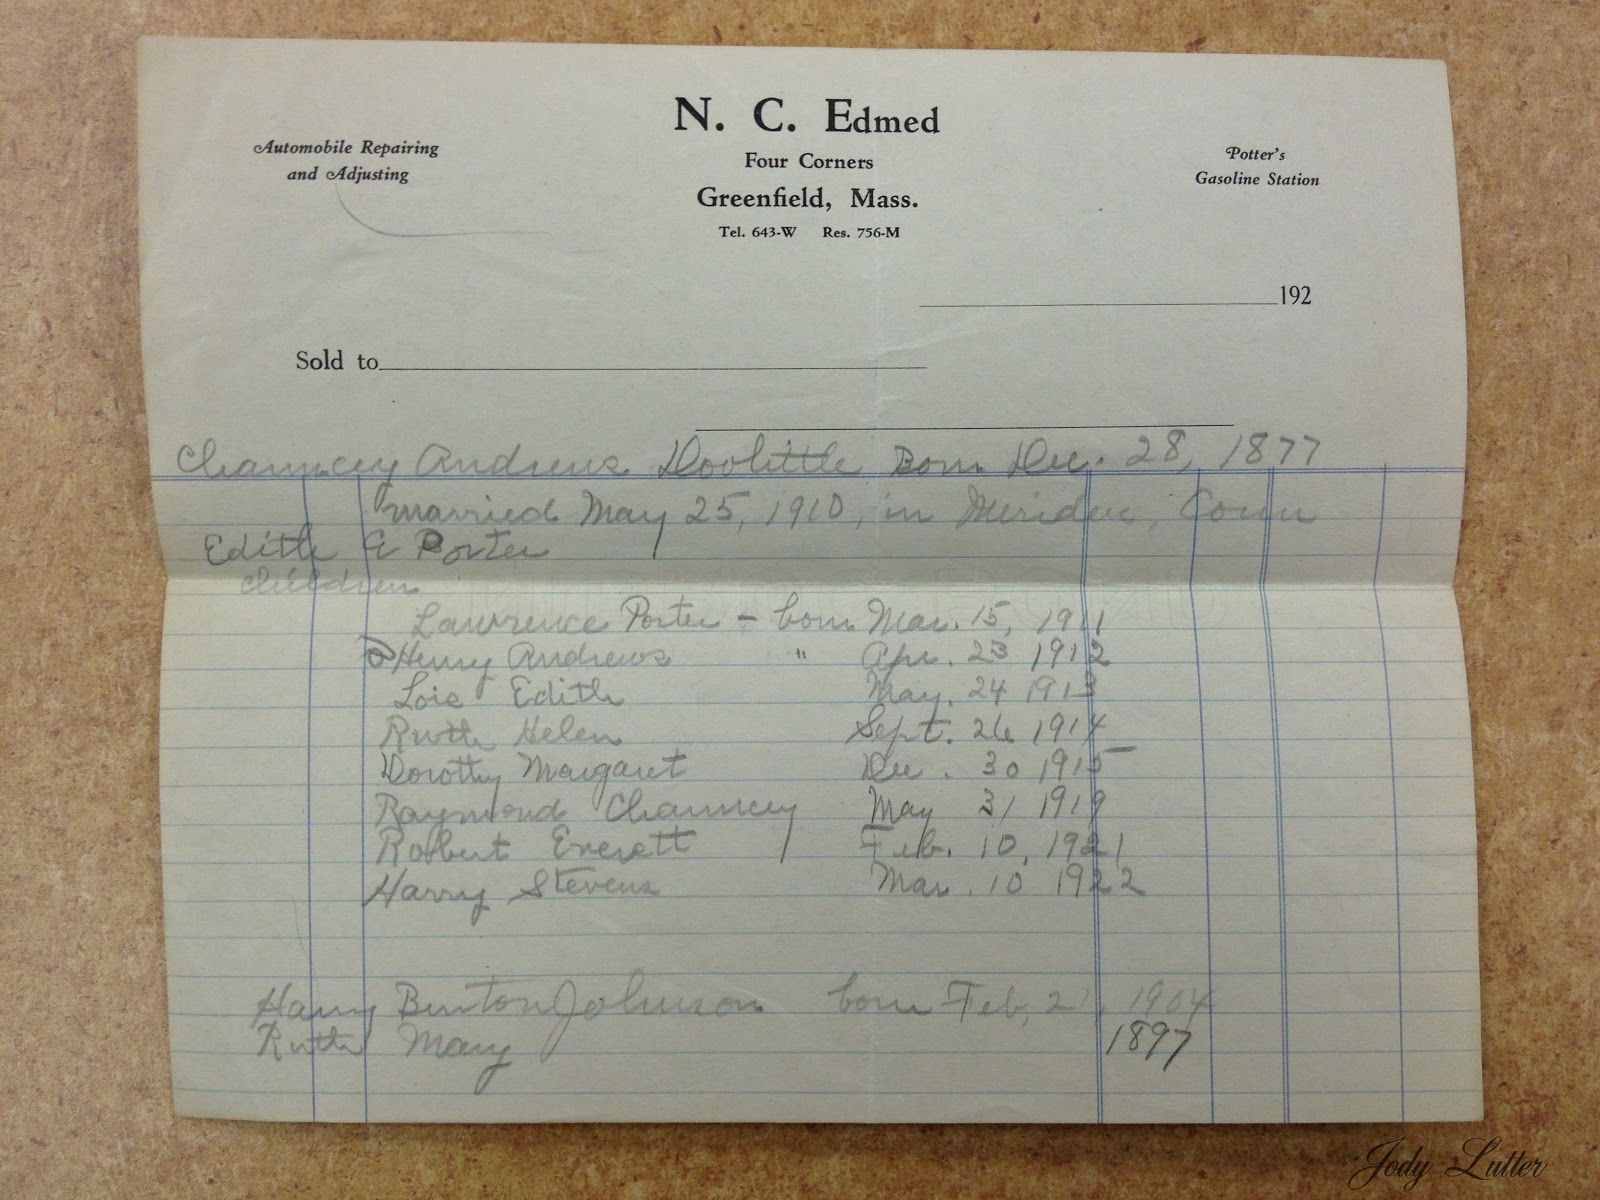 N. C. Edmed
Automobile Repairing
and Adjusting
Four Corners
Potter's
Gasoline Station
Greenfield, Mass.
Tel. 643-W Res. 756-M
192
Sold to
Chauncey Andrews Doolittle Born Dec. 28, 1877
married May 25, 1910, in Meriden, Conn
Edith E Porter
children
Lawrence Porter - born Mar. 15, 1911
Henry Andrews " Apr. 23 1912
Lois Edith May. 24 1913
Ruth Helen Sept. 26 1914
Dorothy Margaret Dec. 30 1915
Raymond Chauncey May 31 1919
Robert Everett Feb. 10, 1921
Harry Stevens Mar. 10 1922
Harry Burton Johnson born Feb, 21, 1904
Ruth Mary 1897
Jody Lutter